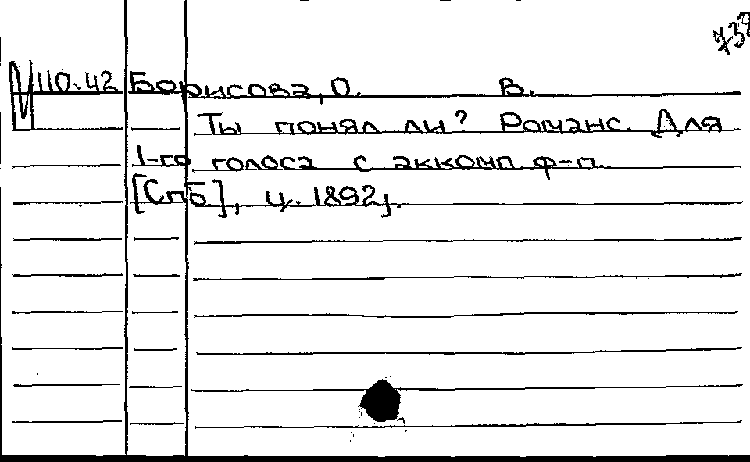 738
M 110.42 Борисова, О. В.
Ты понял ли? Романс. Для
1-го голоса с акком. ф-п.
[Спб], ц. 1892.